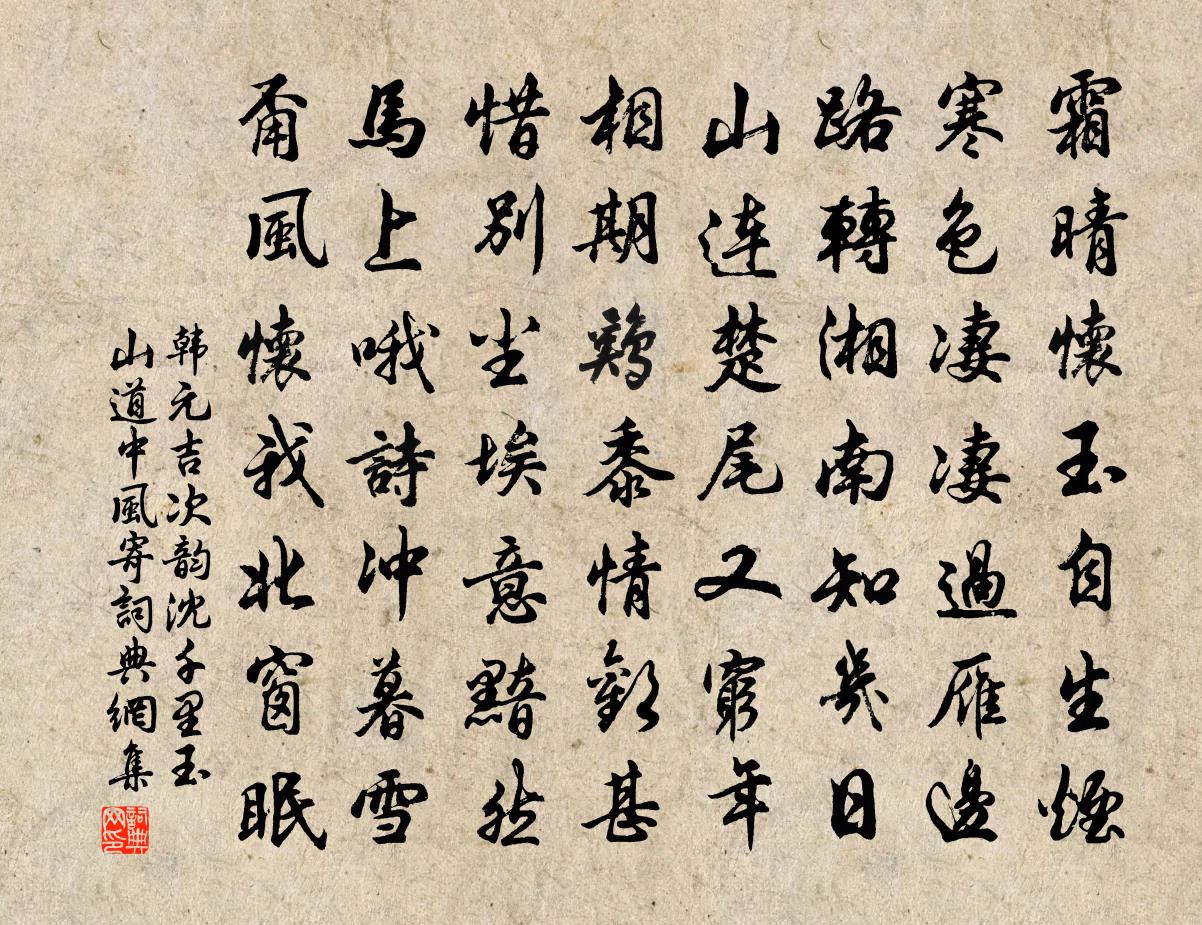 霜晴懷玉自生煙
寒色凄凄過雁邊
路轉湘南知幾日
山連楚尾又窮年
相期鷄黍情歡甚
惜別尘埃意黯然
馬上哦詩冲暮雪
甭風懷我北窗眠
韩元吉次韵沈千里玉
山道中風寄詞典網集
詞典
网印